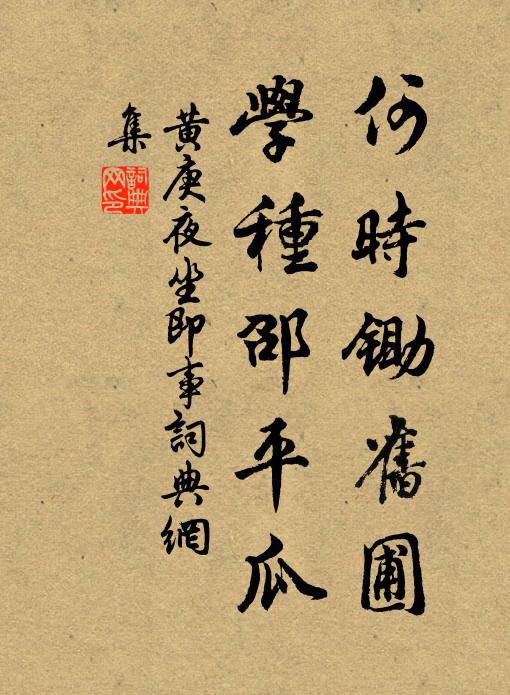 何時鋤舊圃
學種邵平瓜
黄庚夜坐即事詞典網
集
詞典网印